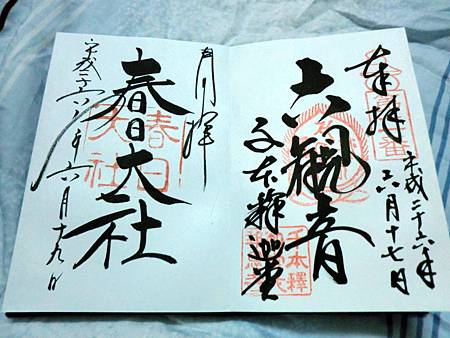 奉拝
平成二十六年
六月十七日
六観音
千本釈迦堂
奉拝
春日大社
平成二十六年六月十九日
春日
大社